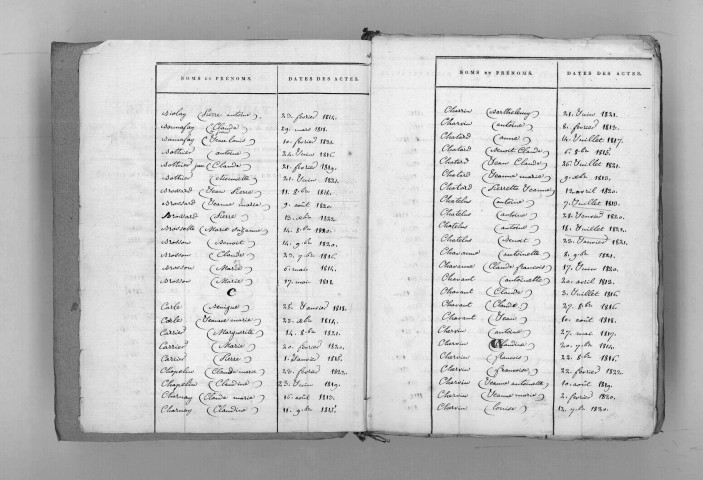 NOMS ET PRÉNOMS. DATES DES ACTES.
Biolay (Pierre antoine) 23. fevrier 1814.
Bonnefay (Claude) 29. mars 1818.
Bonnefay (Jean Louis) 10. fevrier 1821.
Bothier (antoine) 24. Juin 1816.
Bothier (Claude) 21. fevrier 1819.
Bothier (Antoinette) 21. Juin 1821.
Brossard (Jean Pierre) 11. 8.bre 1814.
Brossard (Jeanne marie) 9. août 1820.
Brossard (Pierre) 13. xbre 1822.
Brossette (Marie Suzanne) 14. 8.bre 1820.
Brosson (Benoit) 14. 9.bre 1820.
Brosson (Claude) 23. 7.bre 1816.
Brosson (Marie) 6. mai 1814.
Brosson (Marie) 17. mai 1818.
C
Carle (Benigne) 26. Janvier 1818.
Carle (Jeanne marie) 22. xbre 1814.
Carrier (Marguerite) 14. 8.bre 1821.
Carrier (Marie) 20. fevrier 1820.
Carrier (Pierre) 1. Janvier 1818.
Chapelin (Claude marie) 23. fevrier 1822.
Chapelin (Claudine) 23. Juin 1819.
Charnay (Claude marie) 16. août 1813.
Charnay (Claudine) 11. 9.bre 1818.
NOMS ET PRÉNOMS. DATES DES ACTES.
Charvin (Barthelemy) 21. Juin 1821.
Charvin (antoine) 8. fevrier 1813.
Chatard (anne) 14. Juillet 1817.
Chatard (Benoit Claude) 6. 8.bre 1818.
Chatard (Jean Claude) 26. Juillet 1821.
Chatard (Jeanne marie) 9. xbre 1813.
Chatard (Pierrette Jeanne) 12. avril 1820.
Chatelus (antoine) 7. Juillet 1813.
Chatelus (antoine) 28. Janvier 1820.
Chatelus (antoine) 18. Juillet 1821.
Chatelus (Benoit) 23. Janvier 1821.
Chavanne (antoinette) 8. 9.bre 1821.
Chavanne (Claude francois) 17. Juin 1820.
Chavant (antoinette) 20. avril 1812.
Chavant (Claude) 3. Juillet 1816.
Chavant (Claude) 27. 8.bre 1816.
Chavant (Jean) 10. août 1818.
Chervin (antoine) 27. mai 1817.
Chervin (Claudine) 20. 7.bre 1814.
Chervin (francois) 22. 8.bre 1816.
Chervin (francoise) 22. fevrier 1822.
Chervin (Jeanne antoinette) 10. août 1819.
Chervin (Jeanne marie) 2. fevrier 1820.
Chervin (Louise) 12. 7.bre 1820.